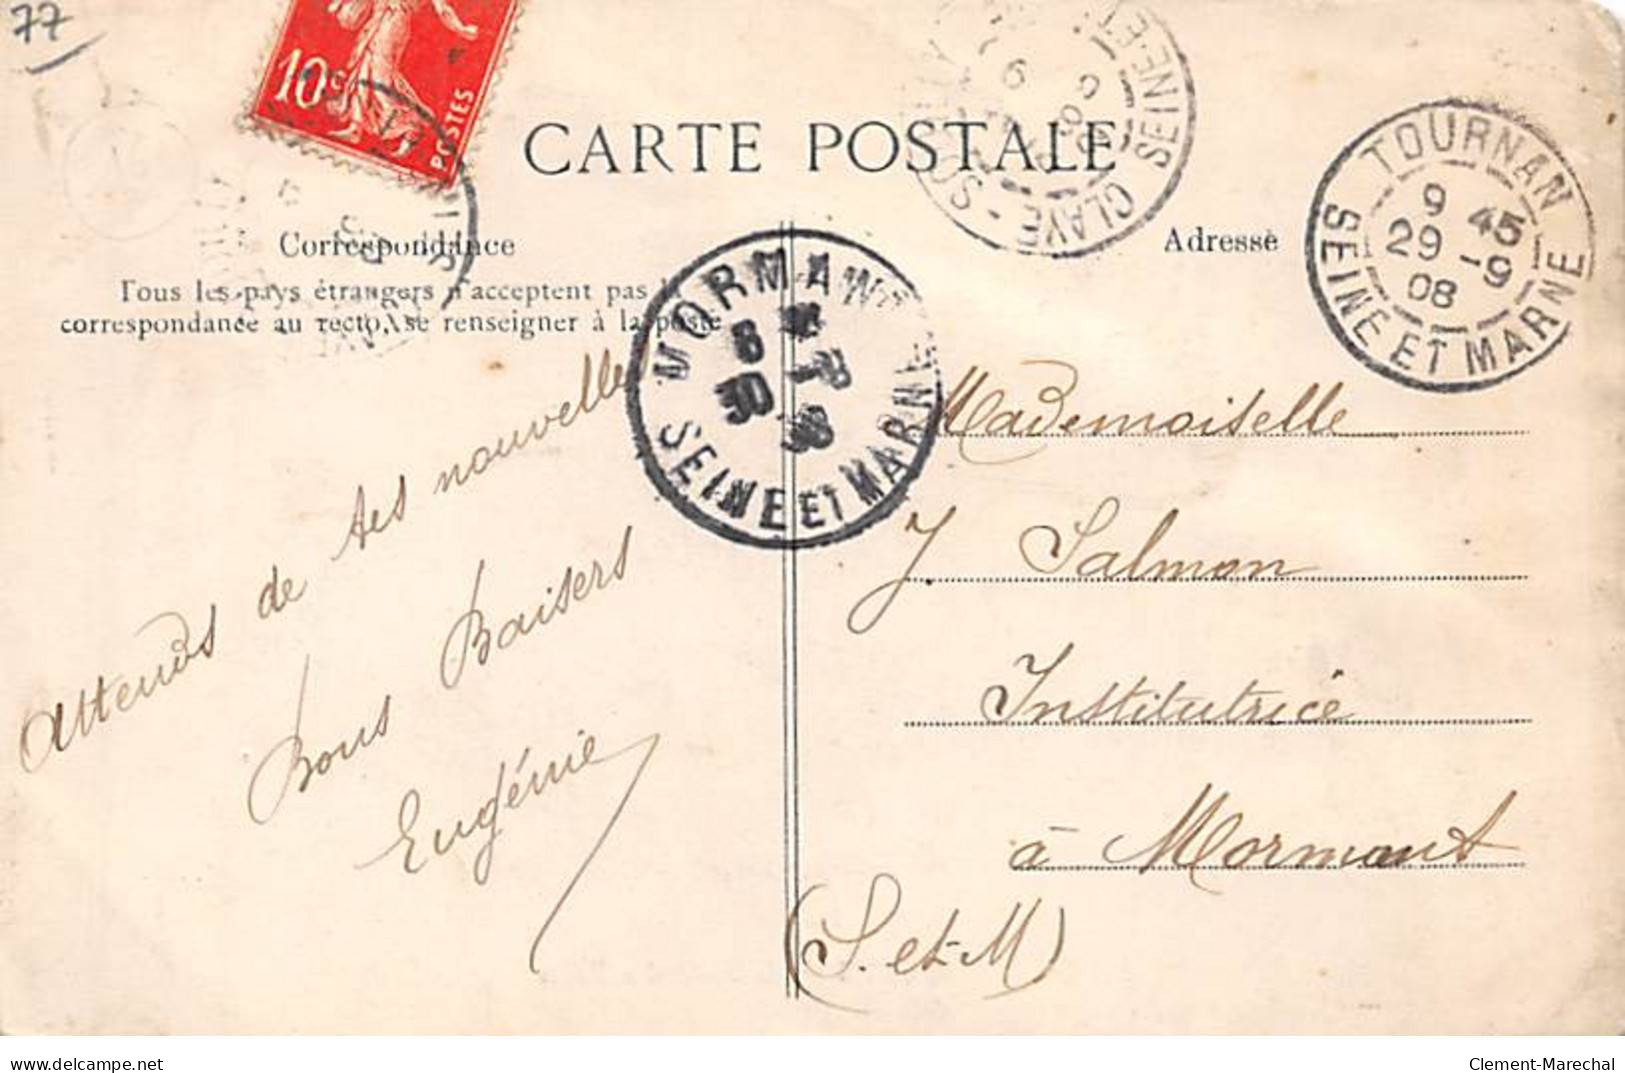 77
10c
POSTES
CARTE POSTALE
CLAYE-SOUILLY
SEINE-ET
TOURNAN
9 45
29 -9
08
SEINE ET MARNE
Correspondance
Adresse
Tous les pays étrangers n'acceptent pas la
correspondance au recto, se renseigner à la poste
MORMANT
SEINE ET MARNE
Attends de tes nouvelles
Bons Baisers
Eugénie
Mademoiselle
J Salmon
Institutrice
à Mormant
(S. et M)
delcampe.net
Clement-Marechal